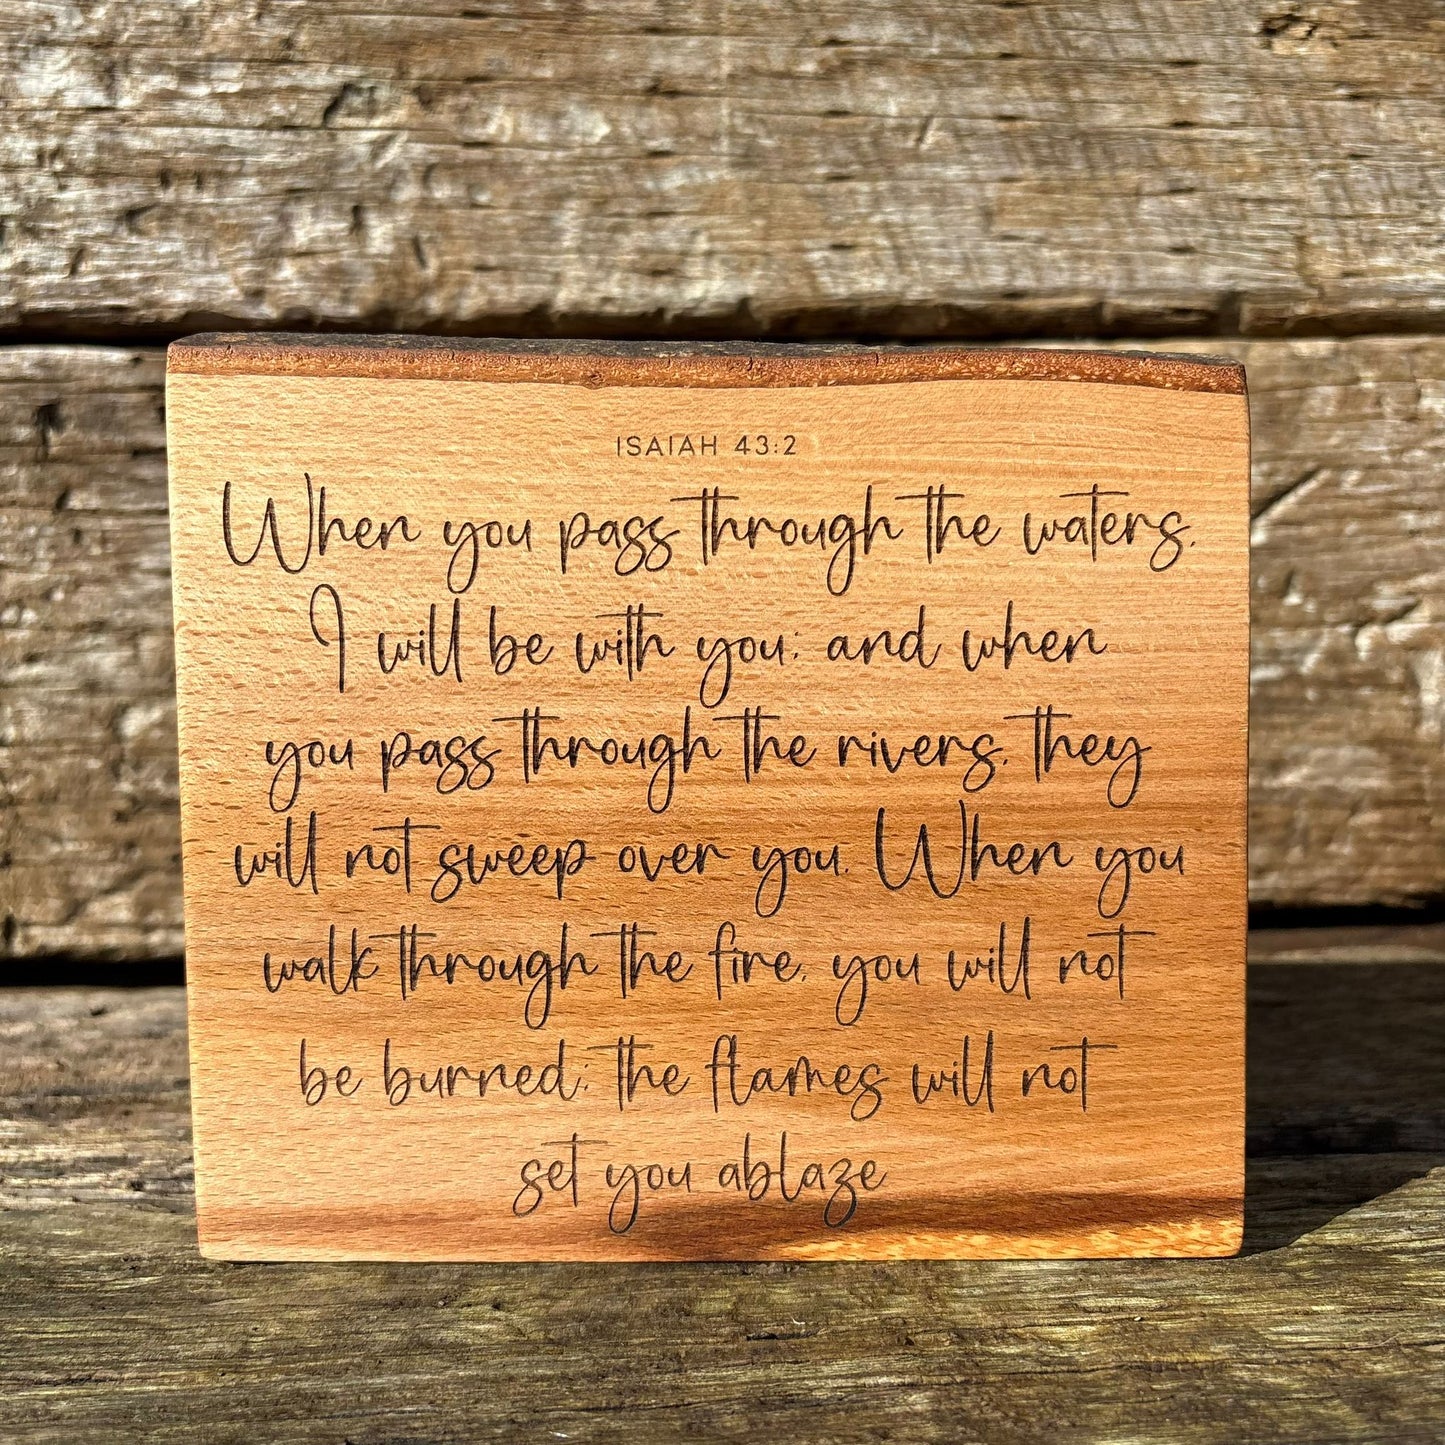 ISAIAH 43:2
When you pass through the waters,
I will be with you; and when
you pass through the rivers, they
will not sweep over you. When you
walk through the fire, you will not
be burned; the flames will not
set you ablaze